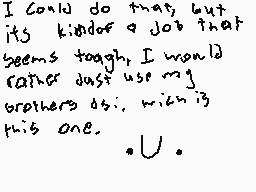 I could do that, but
its kindof a job that
seems tough, I would
rather just use my
brothers dsi. wich is
this one.
.U.